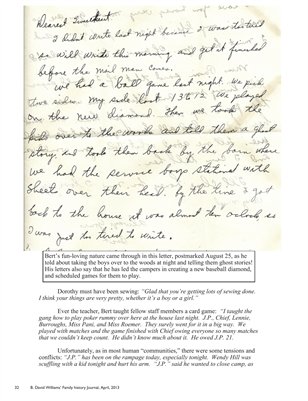 Dearest Sweetheart
I didnt write last night because I was to tired
so will write this morning and get it finished
before the mail man comes.
We had a ball game last night. We pick
two sides. My side lost 13 to 12. We played
on the new diamond. Then we took the
kids over to the woods and told them a ghost
story. We took them back by the barn where
we had the service boys stationed with
sheets over their head. By the time I got
back to the house it was almost ten oclock so
I was just too tired to write.
Bert's fun-loving nature came through in this letter, postmarked August 25, as he
told about taking the boys over to the woods at night and telling them ghost stories!
His letters also say that he has led the campers in creating a new baseball diamond,
and scheduled games for them to play.
Dorothy must have been sewing: "Glad that you're getting lots of sewing done.
I think your things are very pretty, whether it's a boy or a girl."
Ever the teacher, Bert taught fellow staff members a card game: "I taught the
gang how to play poker rummy over here at the house last night. J.P., Chief, Lennie,
Burroughs, Miss Pani, and Miss Roemer. They surely went for it in a big way. We
played with matches and the game finished with Chief owing everyone so many matches
that we couldn't keep count. He didn't know much about it. He owed J.P. 21.
Unfortunately, as in most human "communities," there were some tensions and
conflicts: "J.P." has been on the rampage today, especially tonight. Wendy Wing was
scuffling with a kid tonight and hurt his arm. "J.P." said he wanted to close camp, as
32 B. David Williams' Family history journal, April, 2013